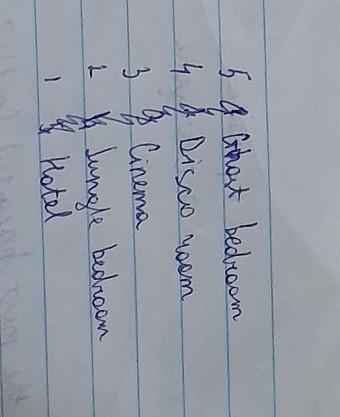 1 Hotel
2 Jungle bedroom
3 Cinema
4 Disco room
5 Ghost bedroom